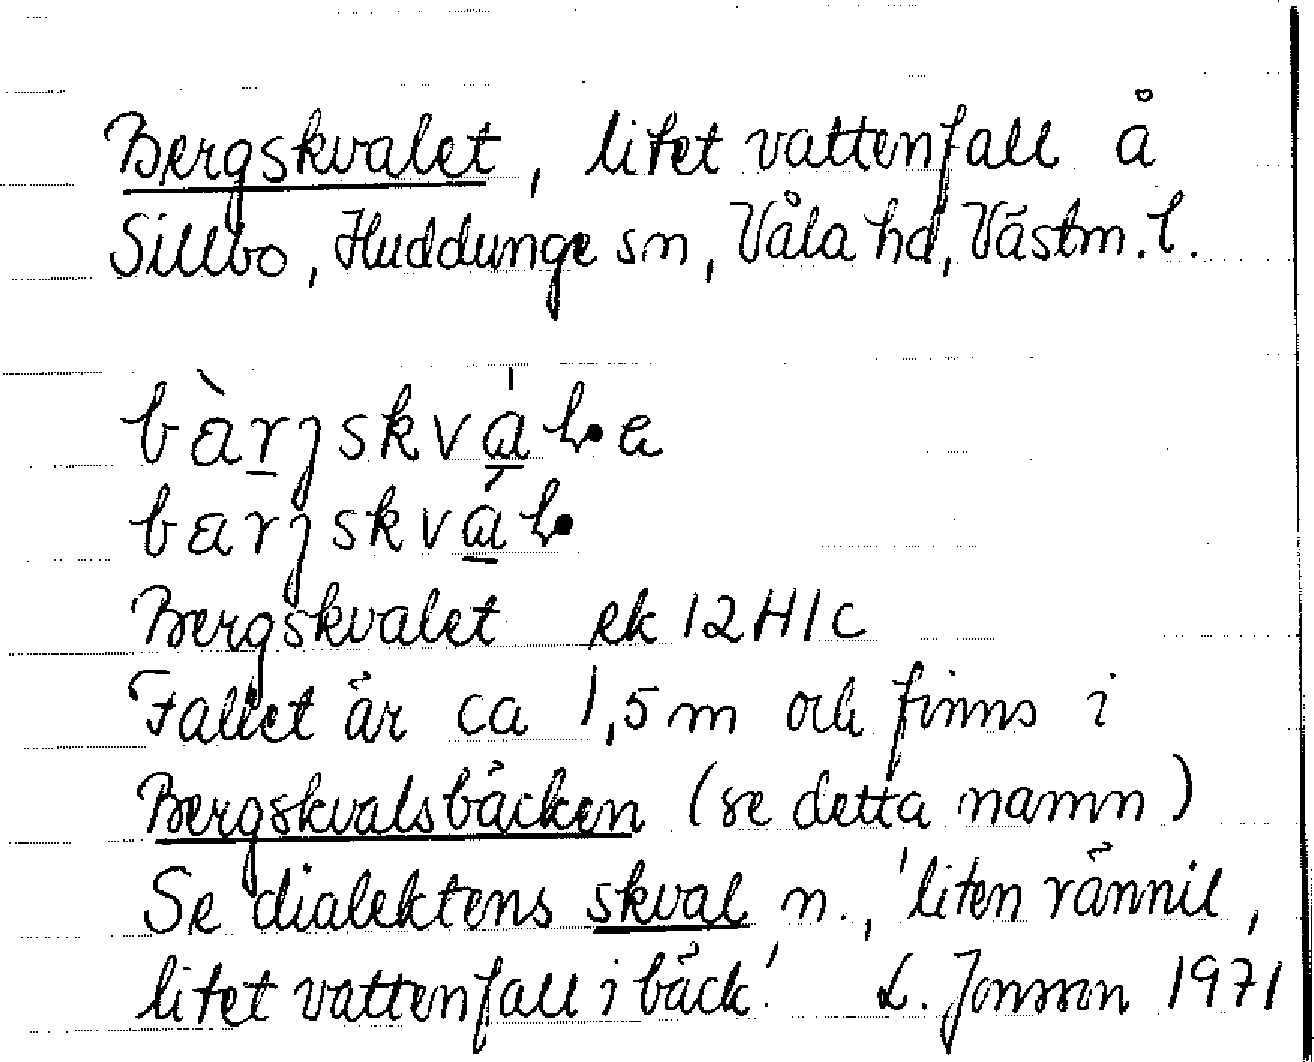 Bergskvalet, litet vattenfall å
Sillbo, Huddunge sn, Våla hd, Västm. l.
Bergskvalet ek 12H1c
Fallet är ca 1,5 m och finns i
Bergskvalsbäcken (se detta namn)
Se dialektens skval n., 'liten rännil,
litet vattenfall i bäck'. L. Jonsson 1971